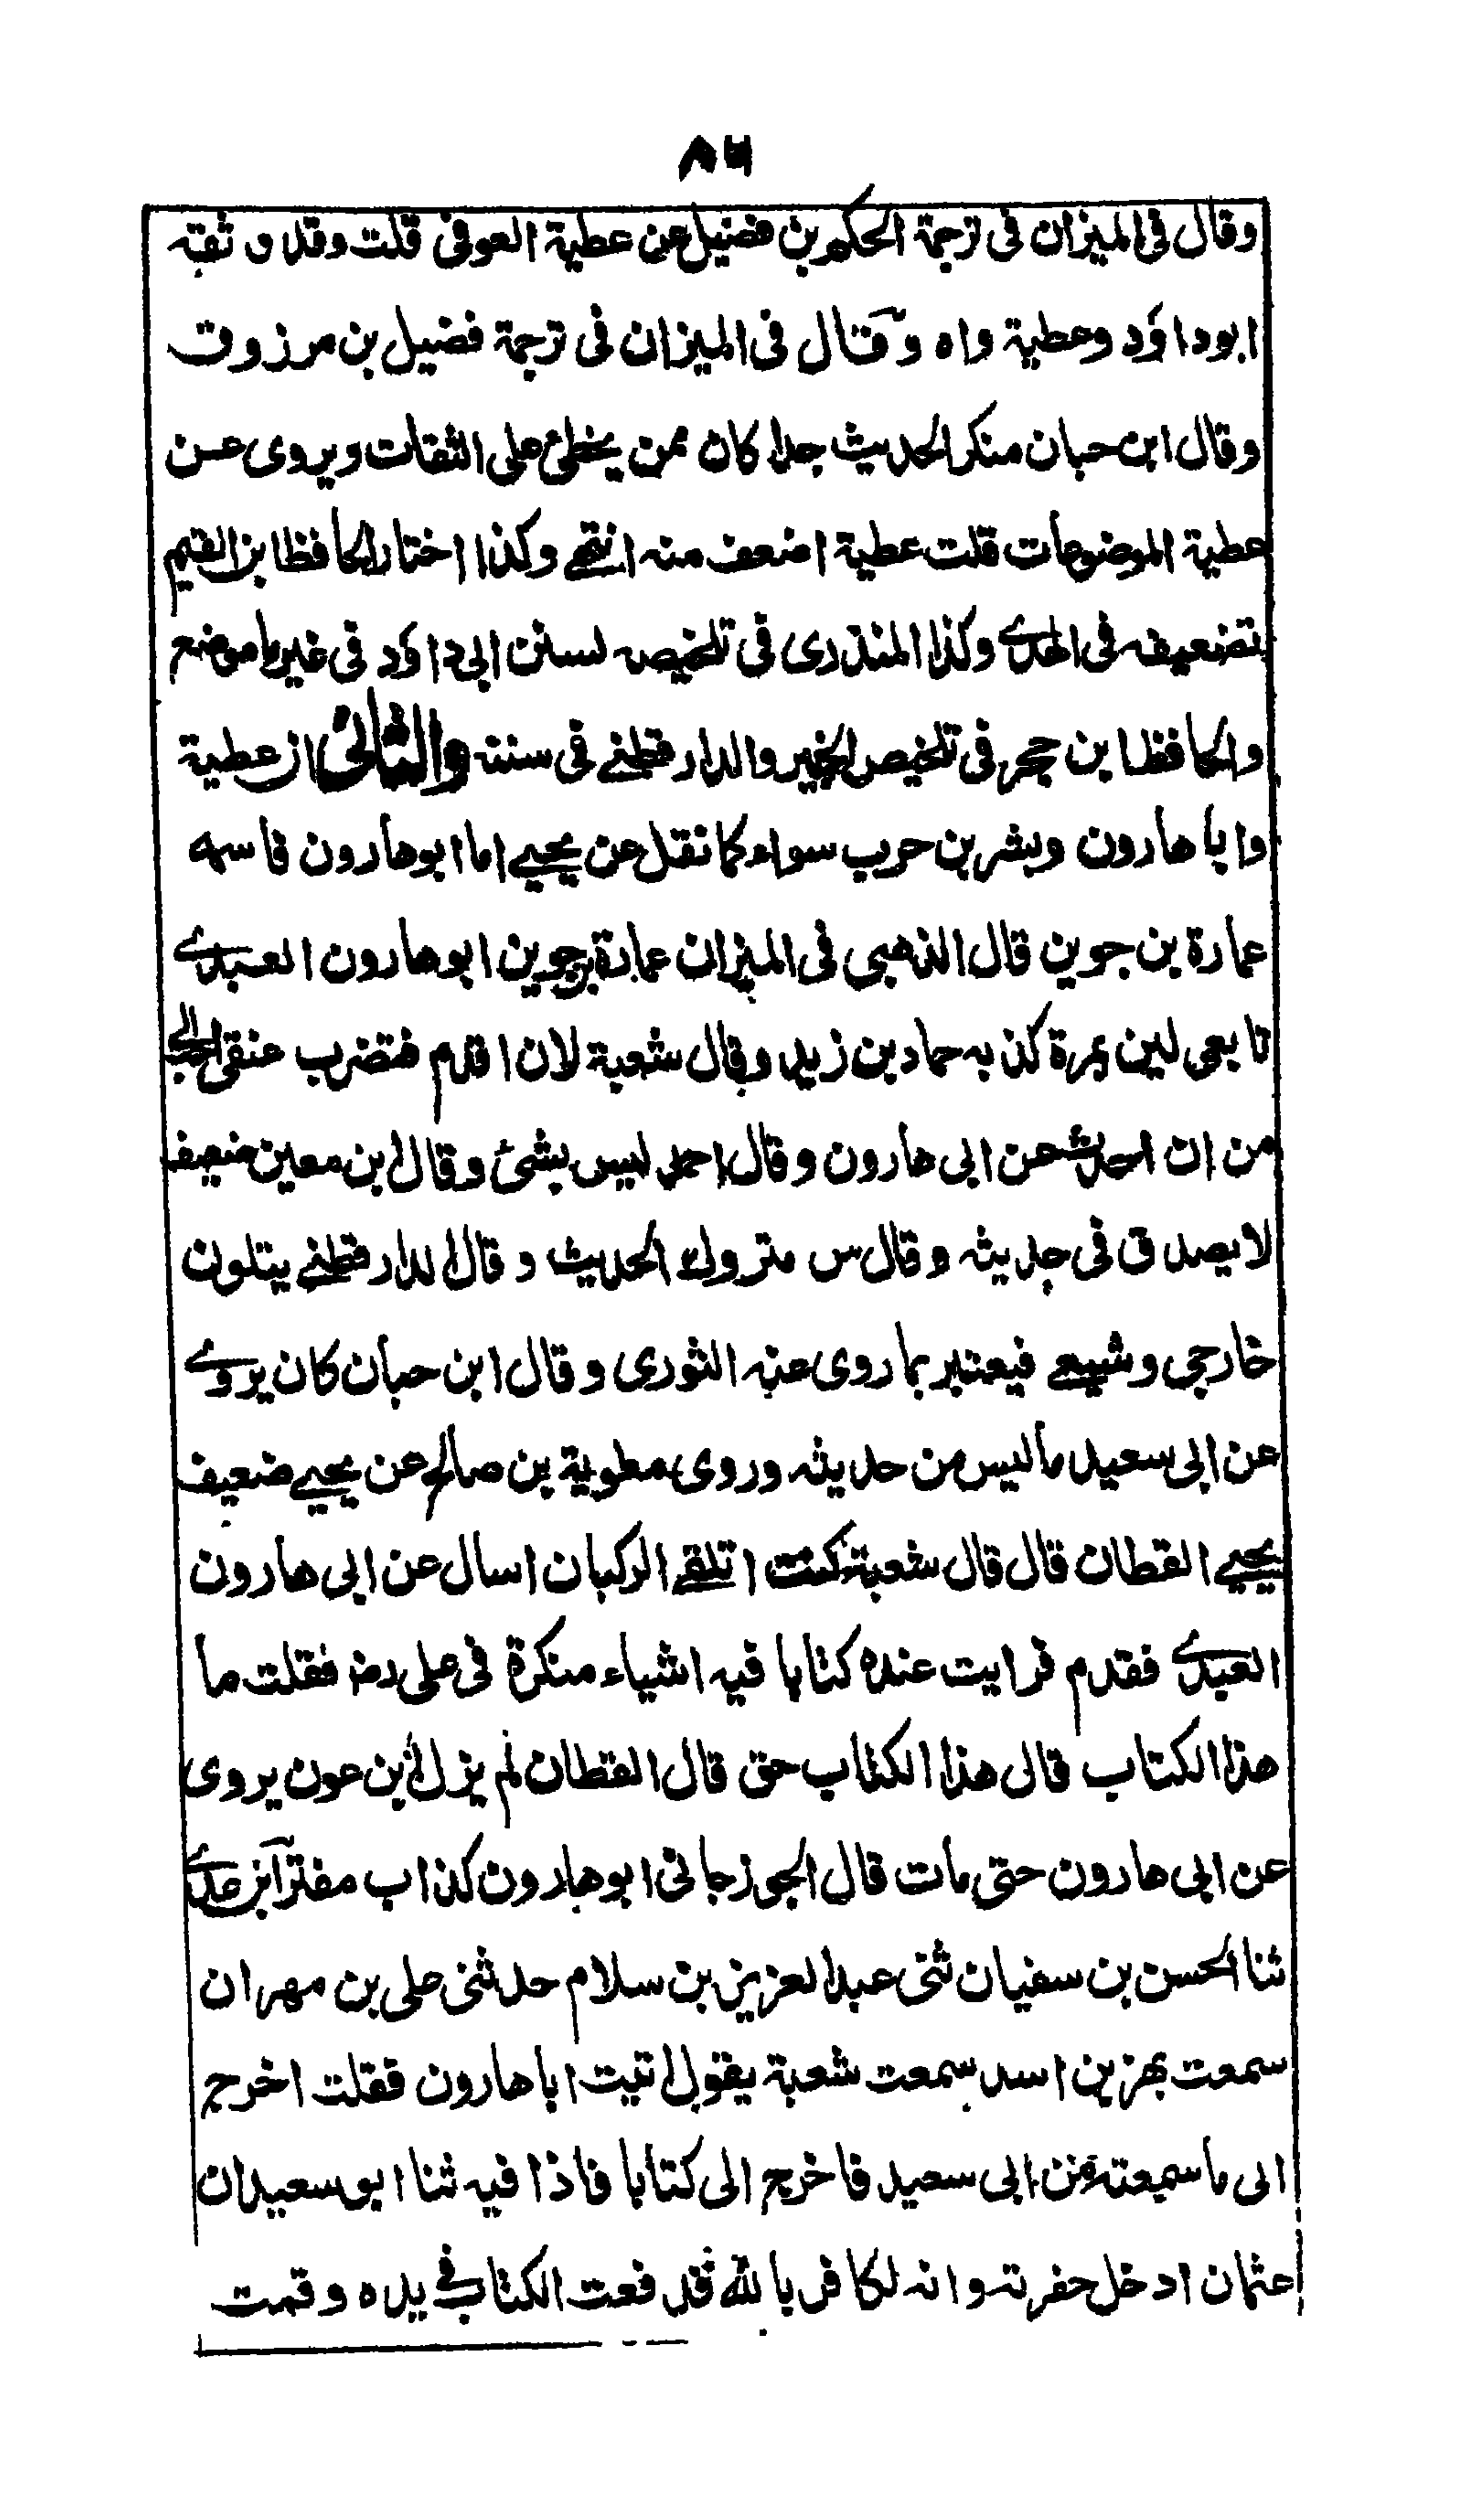 ٨٦
وقال فى الميزان فى ترجمة الحكم بن فضيل عن عطية العوفى قلت وقد وثقه
ابوداؤد وعطية واه وقال فى الميزان فى ترجمة فضيل بن مرزوق
وقال ابن حبان منكر الحديث جدا كان ممن يخطئ على الثقات ويروى عن
عطية الموضوعات قلت عطية اضعف منه انتهى وكذا اختار الحافظ ابن القيم
تضعيفه فى الهدى وكذا المنذرى فى تلخيصه لسنن ابى داؤد فى غير ما موضع
والحافظ ابن حجر فى تلخيص الحبير والدارقطنى فى سننه والثانى ان عطية
وابا هارون وبشر بن حرب سواء كما نقل عن يحيى اما ابوهارون فاسمه
عمارة بن جوين قال الذهبى فى الميزان عمارة بن جوين ابوهارون العبدى
تابعى لين بمرة كذبه حماد بن زيد وقال شعبة لان اقدم فتضرب عنقى احب الى
من ان احدث عن ابى هارون وقال احمد ليس بشئ وقال ابن معين ضعيف
لا يصدق فى حديثه وقال س متروك الحديث وقال الدارقطنى يتلون
خارجى وشيعى فيعتبر بما روى عنه الثورى وقال ابن حبان كان يروى
عن ابى سعيد ما ليس من حديثه وروى معٰوية بن صالح عن يحيى ضعيف
يحيى القطان قال قال شعبة كنت اتلقى الركبان اسال عن ابى هارون
العبدى فقدم فرايت عنده كتابا فيه اشياء منكرة فى على رضـ فقلت ما
هذا الكتاب قال هذا الكتاب حق قال القطان لم يزل ابن عون يروى
عن ابى هارون حتى مات قال الجوزجانى ابوهارون كذاب مفتر ابن عدى
ثنا الحسن بن سفيان ثنى عبد العزيز بن سلام حدثنى على بن مهران
سمعت بهز بن اسد سمعت شعبة يقول اتيت ابا هارون فقلت اخرج
الى ما سمعته من ابى سعيد فاخرج الى كتابا فاذا فيه ثنا ابو سعيد ان
عثمان ادخل حفرته وانه لكافر بالله فدفعت الكتاب فى يده وقمت